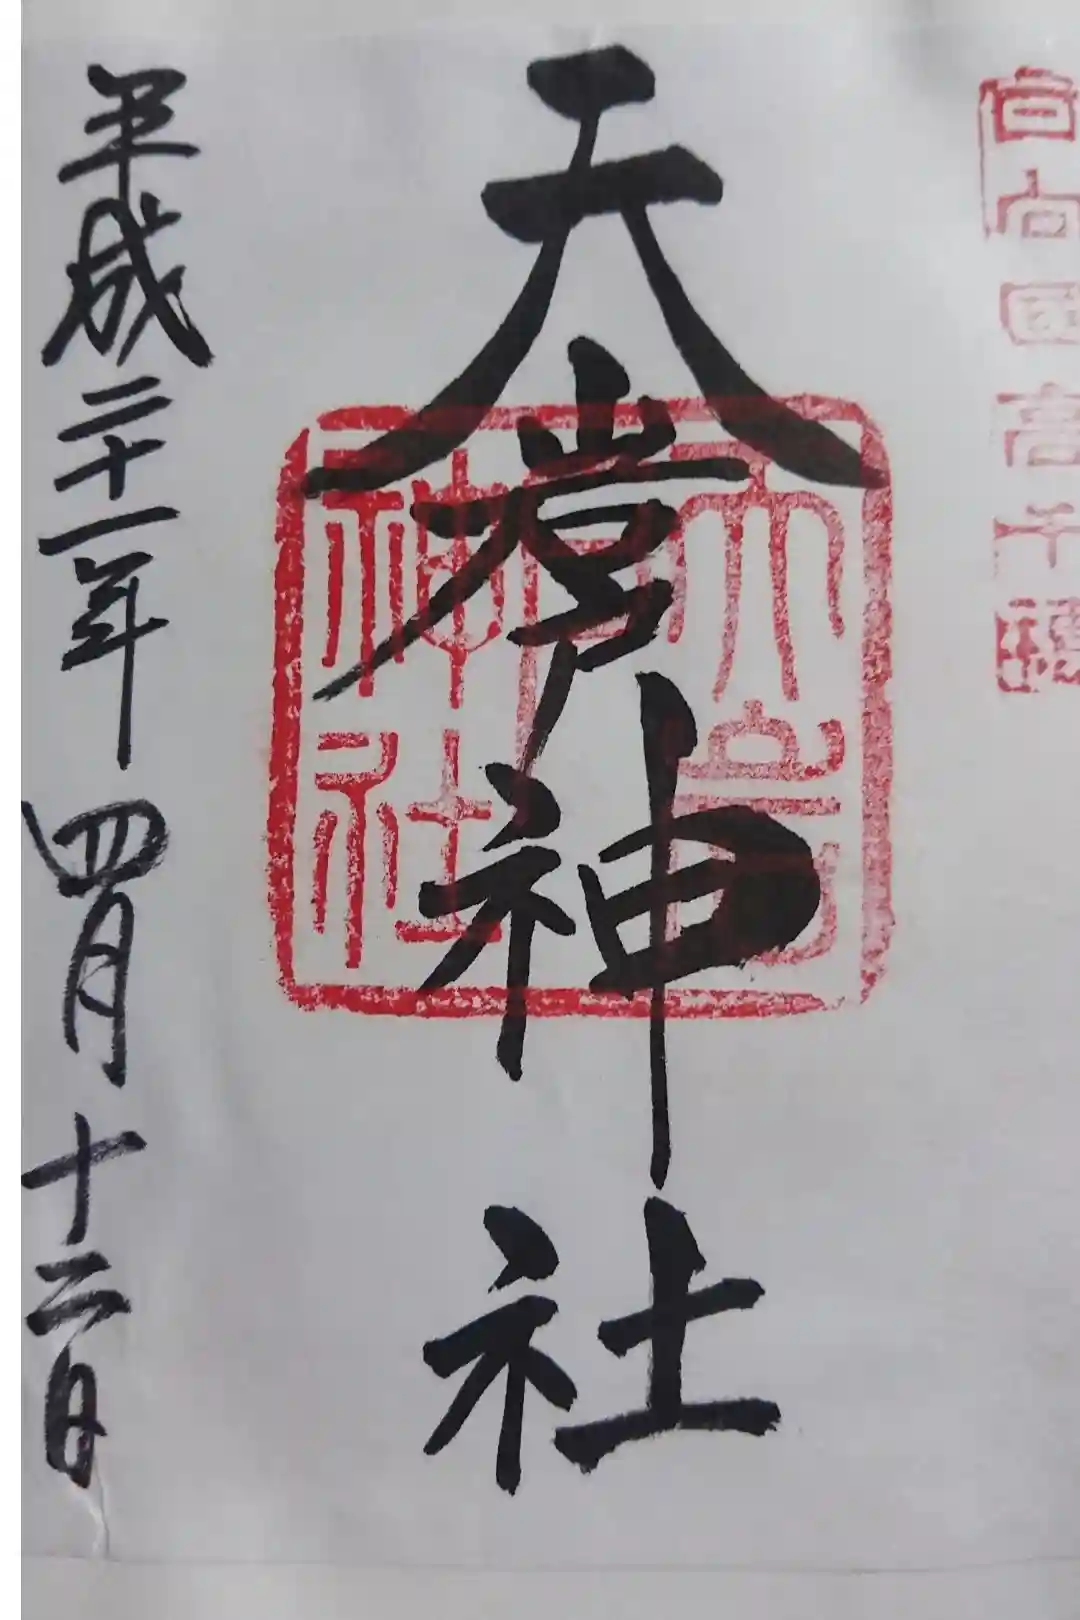 日向國高千穂
天岩戸神社
天岩戸神社
平成二十一年四月十二日